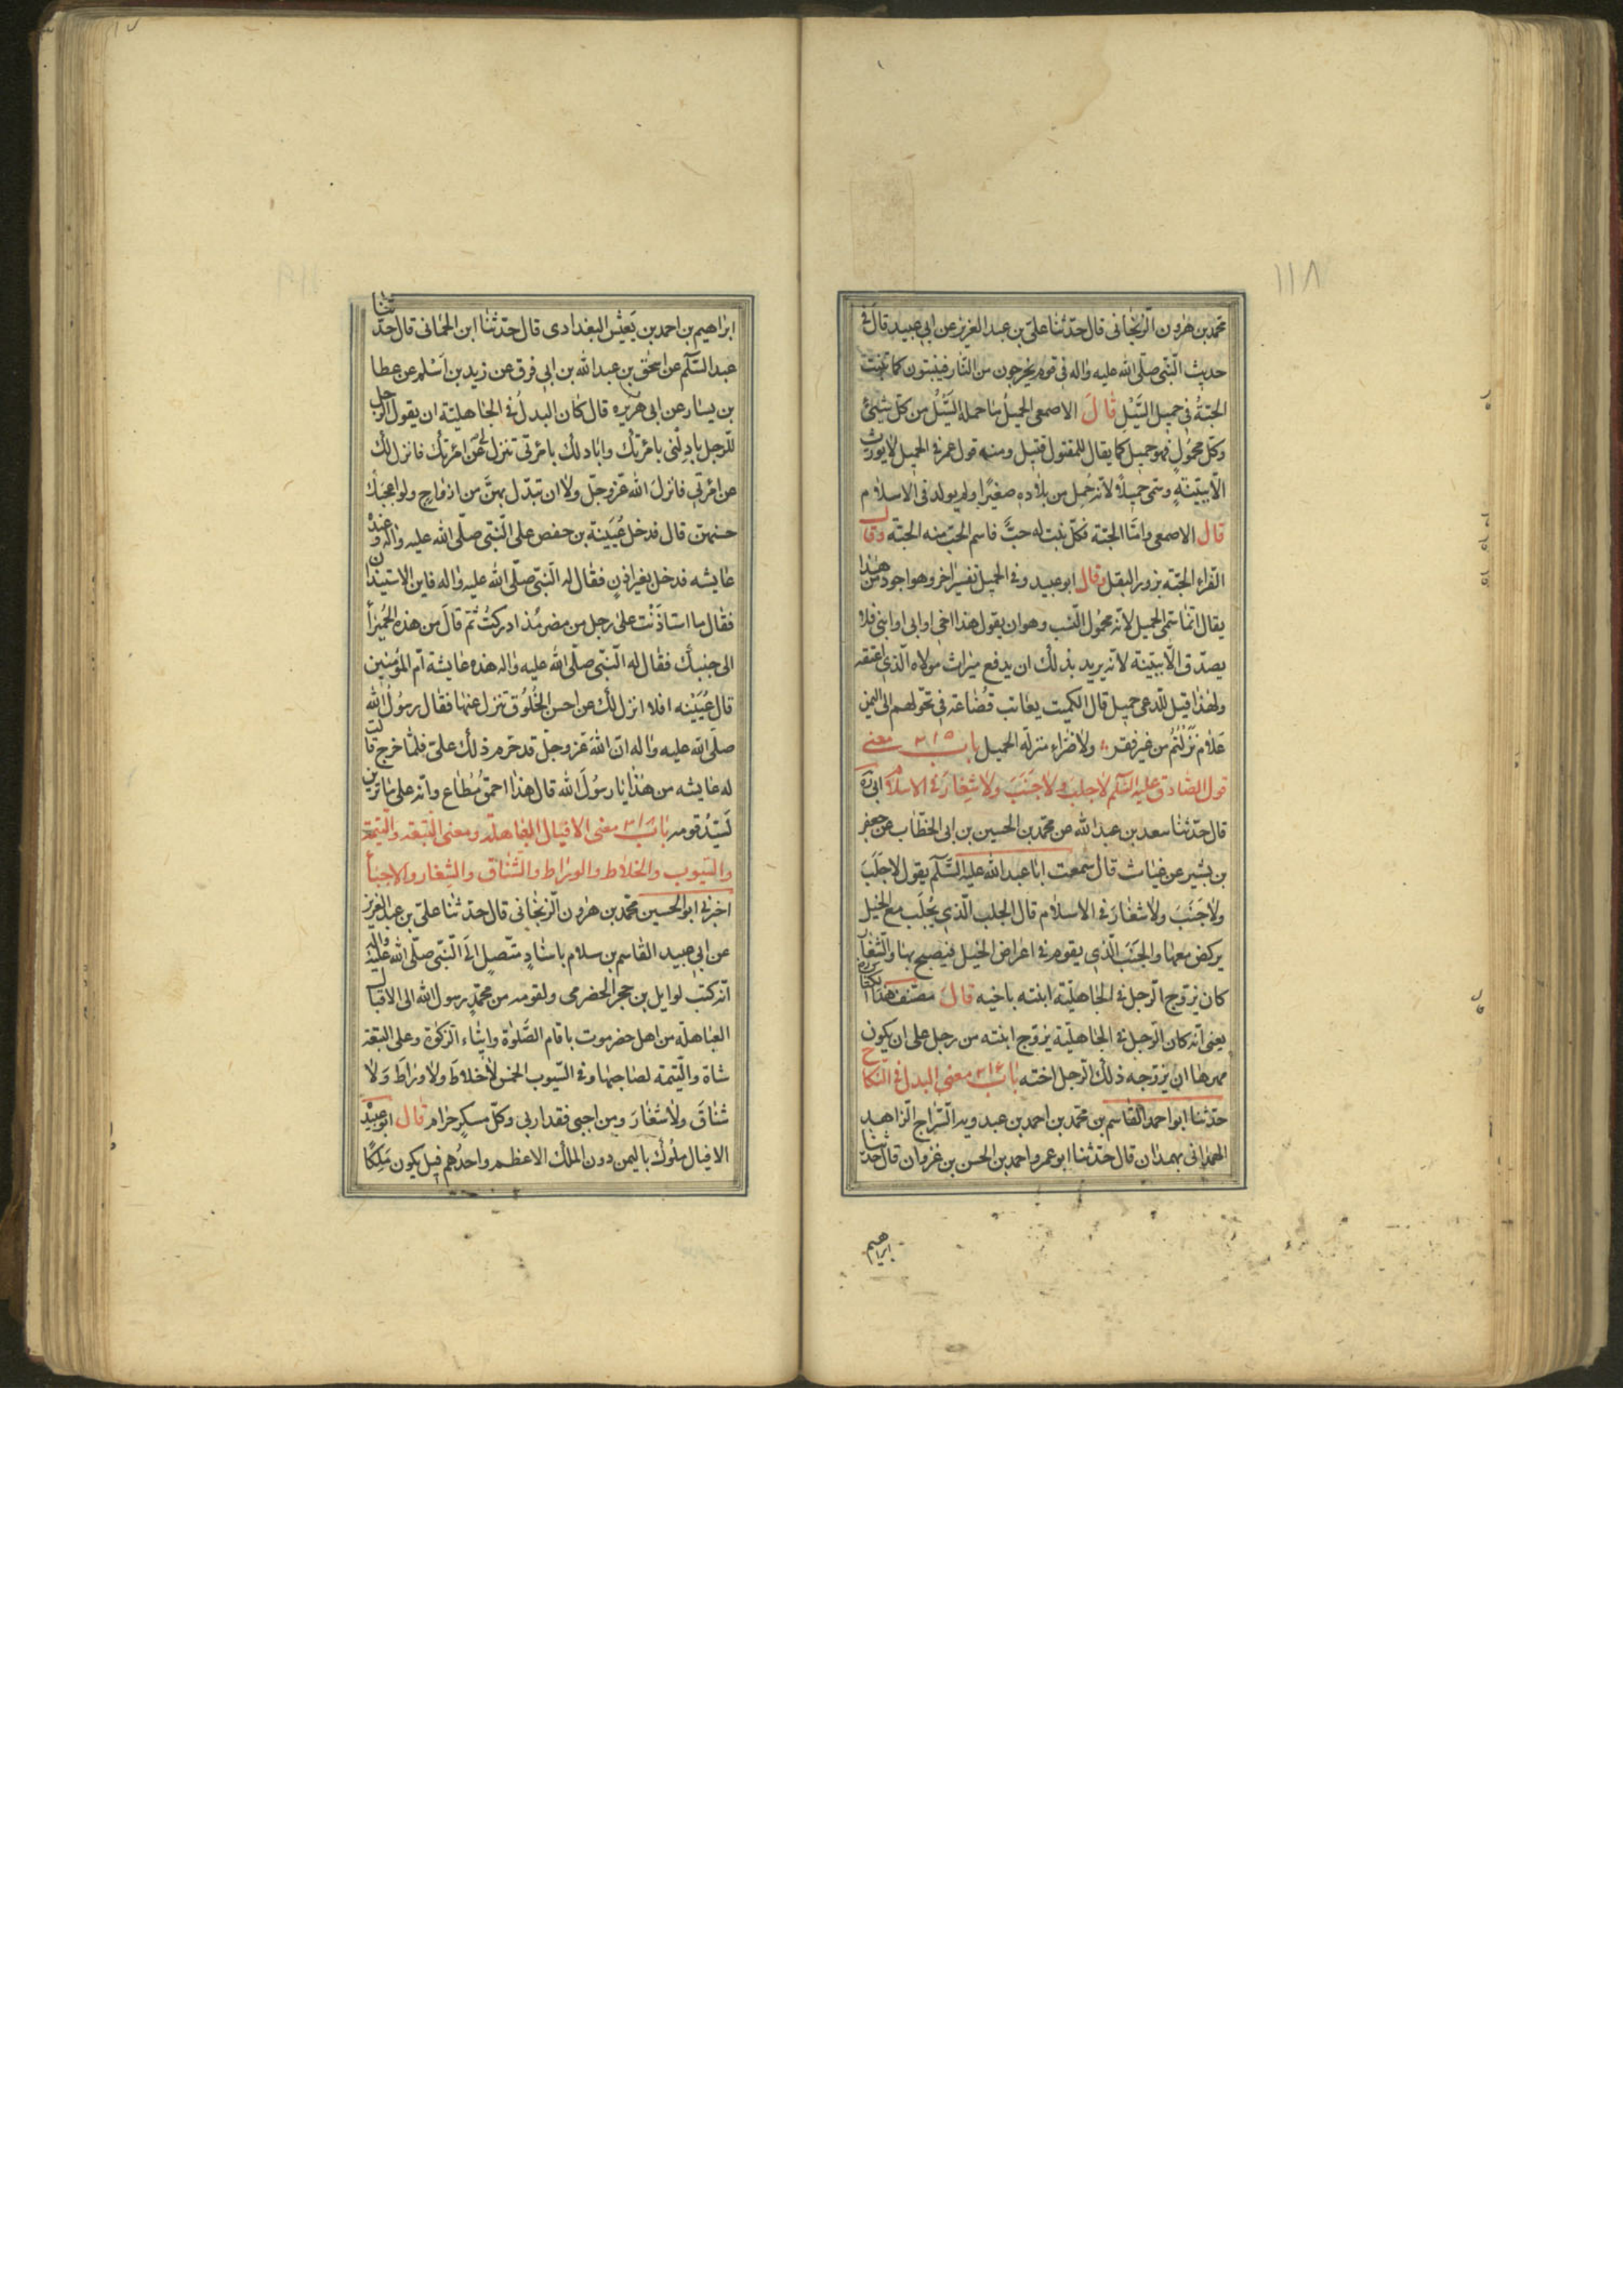 ١١٨
محمد بن هرون الزنجانى قال حدثنا على بن عبد العزيز عن ابى عبيد قال فى
حديث النبى صلى الله عليه واله فى قوم يخرجون من النار فينبتون كما تنبت
الحبة فى حميل السيل قال الاصمعى الحميل ما حمله السيل من كل شىء
وكل محمول فهو حميل كما يقال للمقتول قتيل ومنه قول عمر فى الحميل لا يورث
الا ببينة وسمى حميلا لانه حمل من بلاده صغيرا ولم يولد فى الاسلام
قال الاصمعى واما الحبة فكل نبت له حب فاسم الحب منه الحبة وقال
الفراء الحبة بزور البقل وقال ابو عبيد وفى الحميل تفسير اخر وهو اجود من هذا
يقال انما سمى الحميل لانه محمول النسب وهو ان يقول هذا اخى او ابى او ابنى فلا
يصدق الا ببينة لانه يريد بذلك ان يدفع ميراث مولاه الذى اعتقه
ولهذا قيل للدعى حميل قال الكميت يعاتب قضاعة فى تحولهم الى اليمن
علام نزلتم من غير فقر ولا ضراء منزلة الحميل باب ٣١٥ معنى
قول الصادق عليه السلم لا جلب ولا جنب ولا شغار فى الاسلام ابى ره
قال حدثنا سعد بن عبد الله عن محمد بن الحسين بن ابى الخطاب عن جعفر
بن بشير عن غياث قال سمعت ابا عبد الله عليه السلم يقول لا جلب
ولا جنب ولا شغار فى الاسلام قال الجلب الذى يجلب مع الخيل
يركض معها والجنب الذى يقوم فى اعراض الخيل فيصيح بها والشغار
كان يزوج الرجل فى الجاهلية ابنته باخيه قال مصنف هذا الكتاب
يعنى انه كان الرجل فى الجاهلية يزوج ابنته من رجل على ان يكون
مهرها ان يزوجه ذلك الرجل اخته باب ٣١٦ معنى البدل فى النكاح
حدثنا ابو احمد القاسم بن محمد بن احمد بن عبدويه السراج الزاهد
الهمدانى بهمدان قال حدثنا ابو عمرو احمد بن الحسن بن غزوان قال حدثنا
ابراهيم
ابراهيم بن احمد بن يعيش البغدادى قال حدثنا ابن الحمانى قال حدثنا
عبد السلم عن اسحق بن عبد الله بن ابى فرق عن زيد بن اسلم عن عطا
بن يسار عن ابى هريره قال كان البدل فى الجاهلية ان يقول الرجل
للرجل بادلنى بامرتك وابادلك بامرتى تنزل لى عن امرتك فانزل لك
عن امرتى فانزل الله عز وجل ولا ان تبدل بهن من ازواج ولو اعجبك
حسنهن قال فدخل عيينة بن حفص على النبى صلى الله عليه واله وعنده
عايشه فدخل بغير اذن فقال له النبى صلى الله عليه واله فاين الاستيذان
فقال ما استاذنت على رجل من مضر مذ ادركت ثم قال من هذه الحميرأ
الى جنبك فقال له النبى صلى الله عليه واله هذه عايشة ام المؤمنين
قال عيينه افلا انزل لك عن احسن الخلوق تنزل عنها فقال رسول الله
صلى الله عليه واله ان الله عز وجل قد حرم ذلك على فلما خرج قالت
له عايشه من هذا يا رسول الله قال هذا احمق مطاع وانه على ما ترين
لسيد قومه باب ٣١٧ معنى الاقيال العباهله ومعنى التبعه والتيمة
والسيوب والخلاط والوراط والشناق والشغار والاجبأ
اخبرنى ابو الحسين محمد بن هرون الزنجانى قال حدثنا على بن عبد العزيز
عن ابى عبيد القاسم بن سلام باسناد متصل الى النبى صلى الله عليه واله
انه كتب لوايل بن حجر الحضرمى ولقومه من محمد رسول الله الى الاقيال
العباهلة من اهل حضرموت باقام الصلوة وايتاء الزكوة وعلى التبعه
شاة والتيمه لصاحبها وفى السيوب الخمس لا خلاط ولا وراط ولا
شناق ولا شغار ومن اجبى فقد اربى وكل مسكر حرام قال ابو عبيد
الاقيال ملوك باليمن دون الملك الاعظم واحدهم قيل يكون ملكا